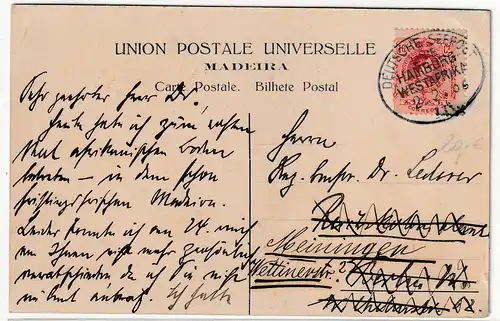 UNION POSTALE UNIVERSELLE
MADEIRA
Carte Postale. Bilhete Postal
DEUTSCHE SEEPOST
HAMBURG
WESTAFRIKA
Sehr geehrter Herr Dr.!
Heute habe ich zum ersten
Mal afrikanischen Boden
betreten – in dem schon
frühlingsfrischen Madeira.
Leider konnte ich am 24. mich
von Ihnen nicht mehr persönlich
verabschieden da ich Sie nicht
antraf. Ich hatte
Herrn
Reg. Dr. Lederer
Meiningen
Berlin W.